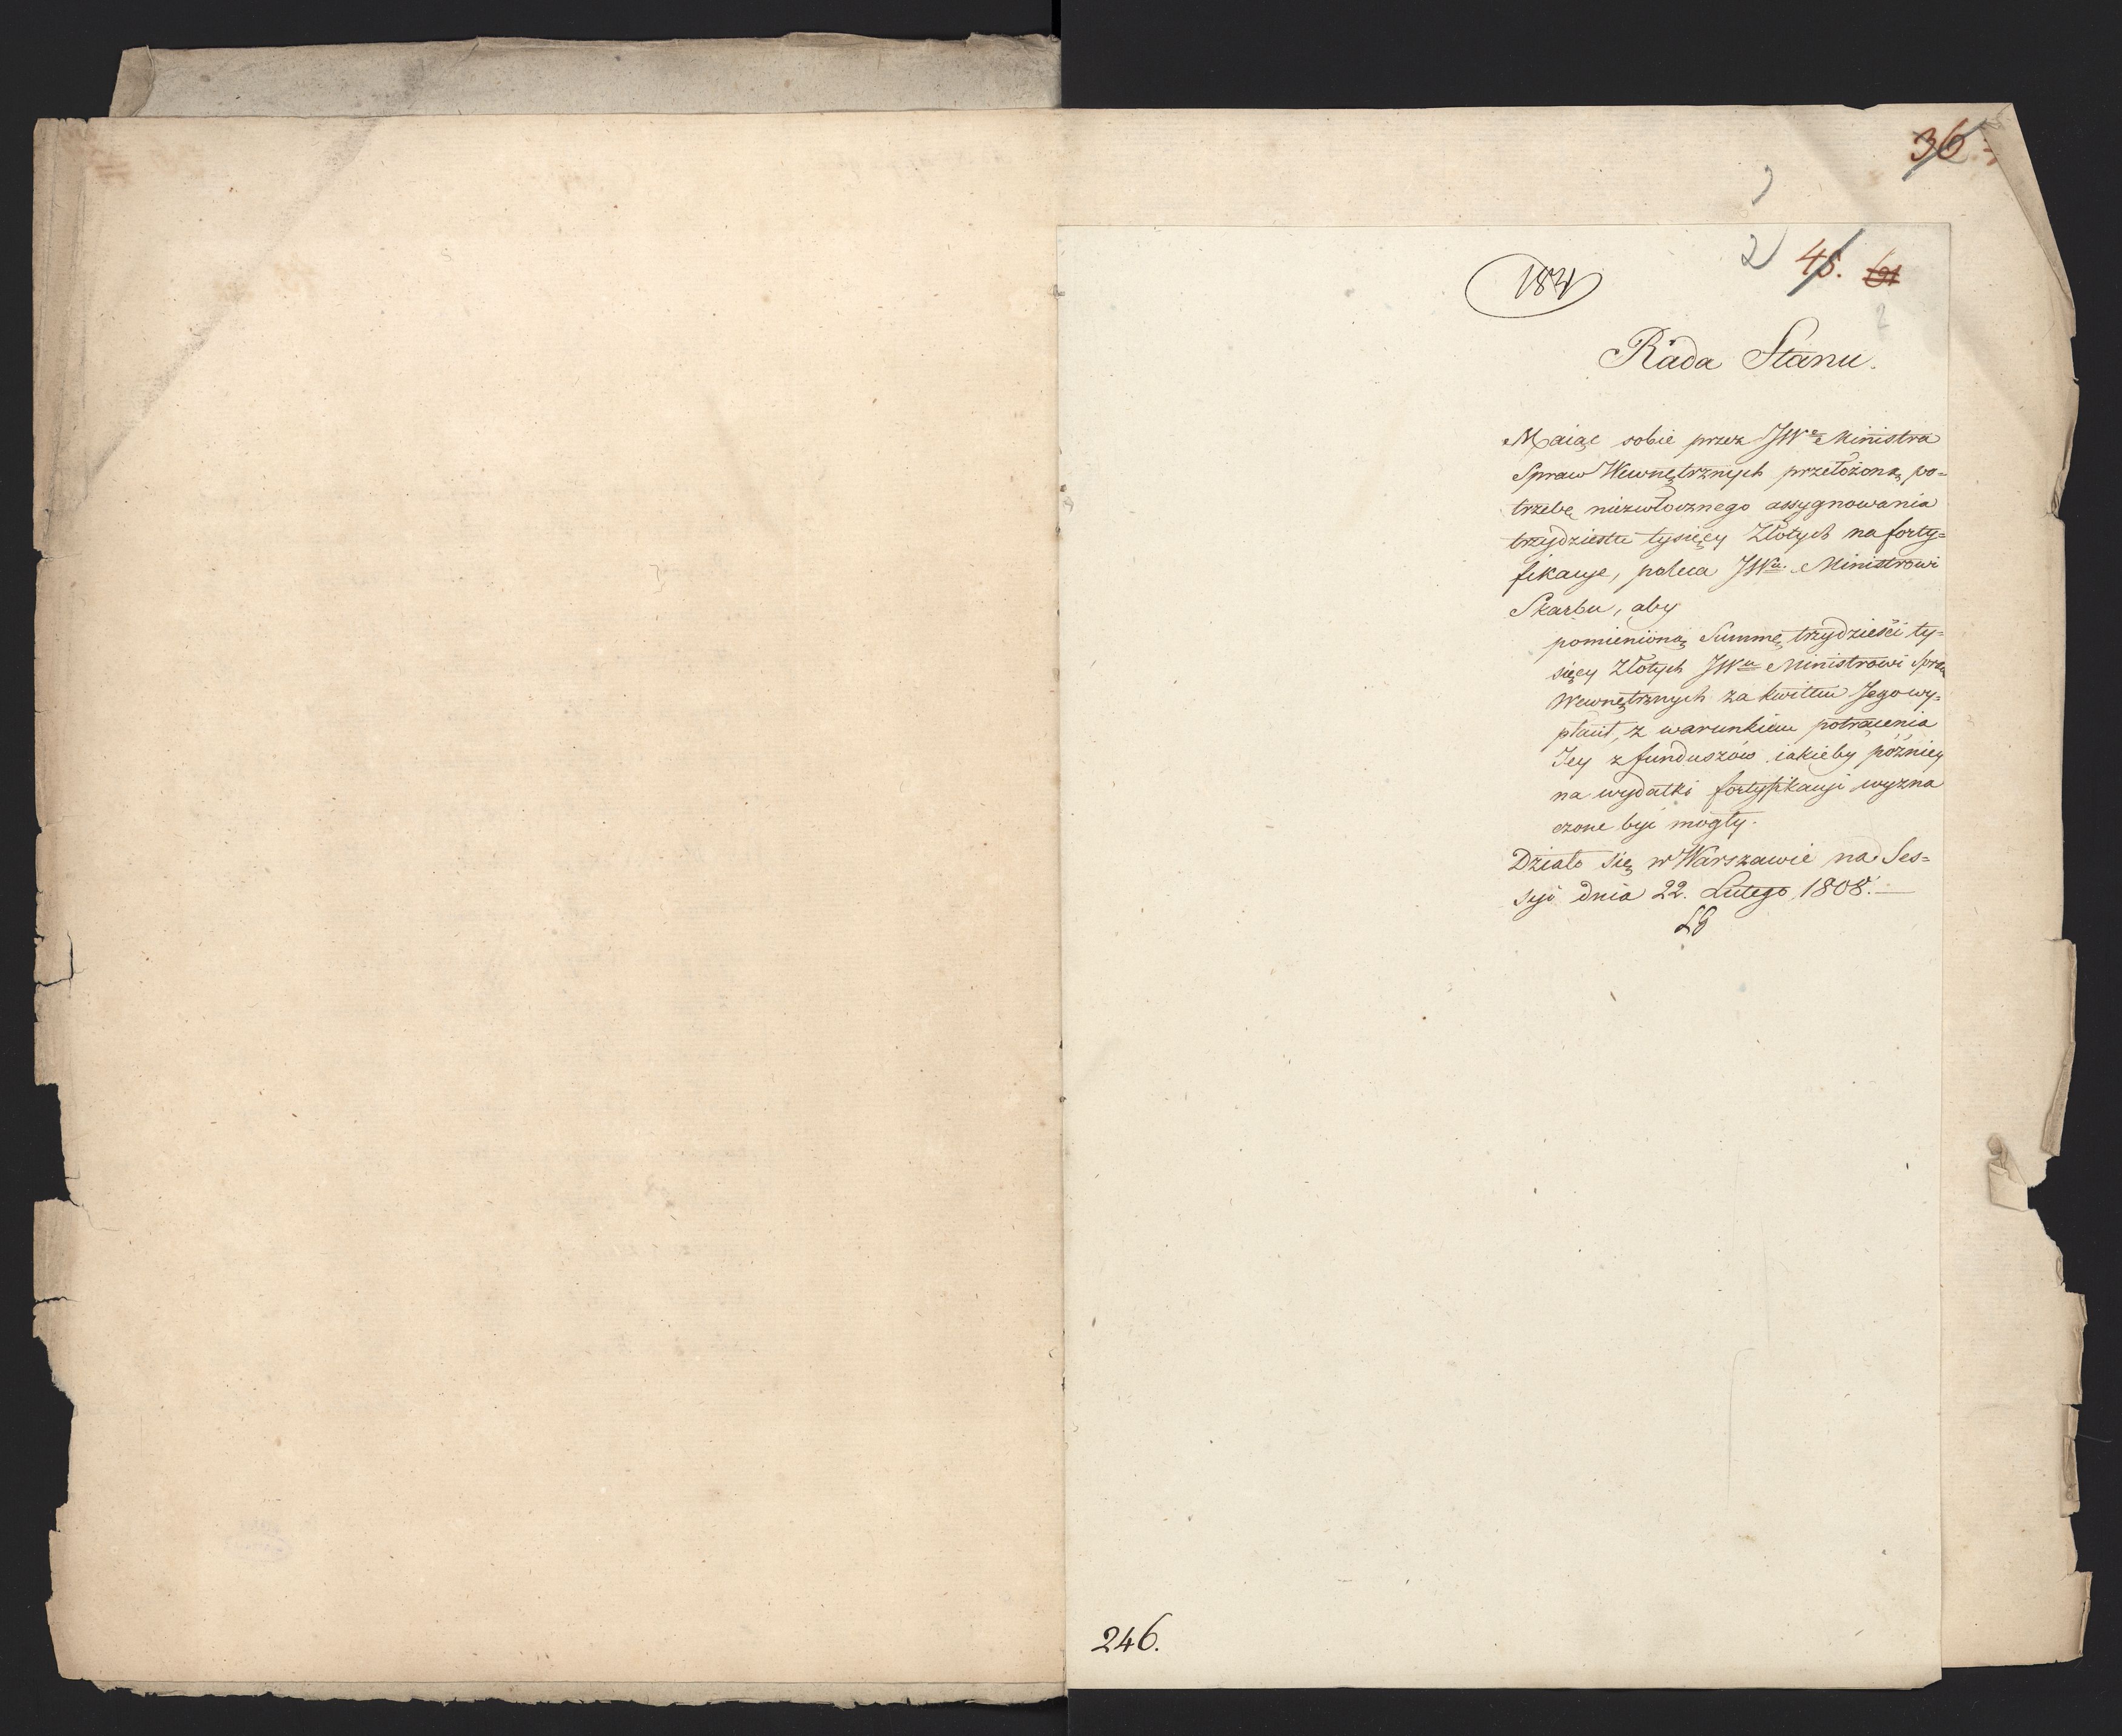 36.
2
45.
184
2
Rada Stanu.
Maiąc sobie przez JWo Ministra
Spraw Wewnętrznych przełożoną po=
trzebę niezwłocznego assygnowania
trzydziestu tysięcy Złotych na forty=
fikacye, poleca JWu. Ministrowi
Skarbu, aby
pomienioną Summę trzydzieści ty=
sięcy Złotych JWu Ministrowi Spraw
Wewnętrznych za kwitem Jego wy=
płacił, z warunkiem potrącenia
Jey z funduszów iakieby późniey
na wydatki fortyfikacyi wyzna
czone być mogły.
Działo się w Warszawie na Ses=
syi dnia 22. Lutego 1808.—
246.